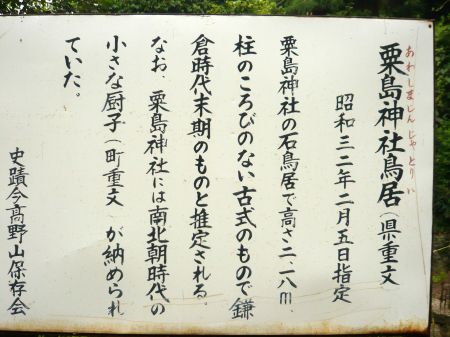 あわしまじんじゃとりい
粟島神社鳥居(県重文)
昭和三二年二月五日指定
粟島神社の石鳥居で高さ二.二八m、
柱のころびのない古式のもので鎌
倉時代末期のものと推定される。
なお、粟島神社には南北朝時代の
小さな厨子(町重文)が納められ
ていた。
史蹟今高野山保存会